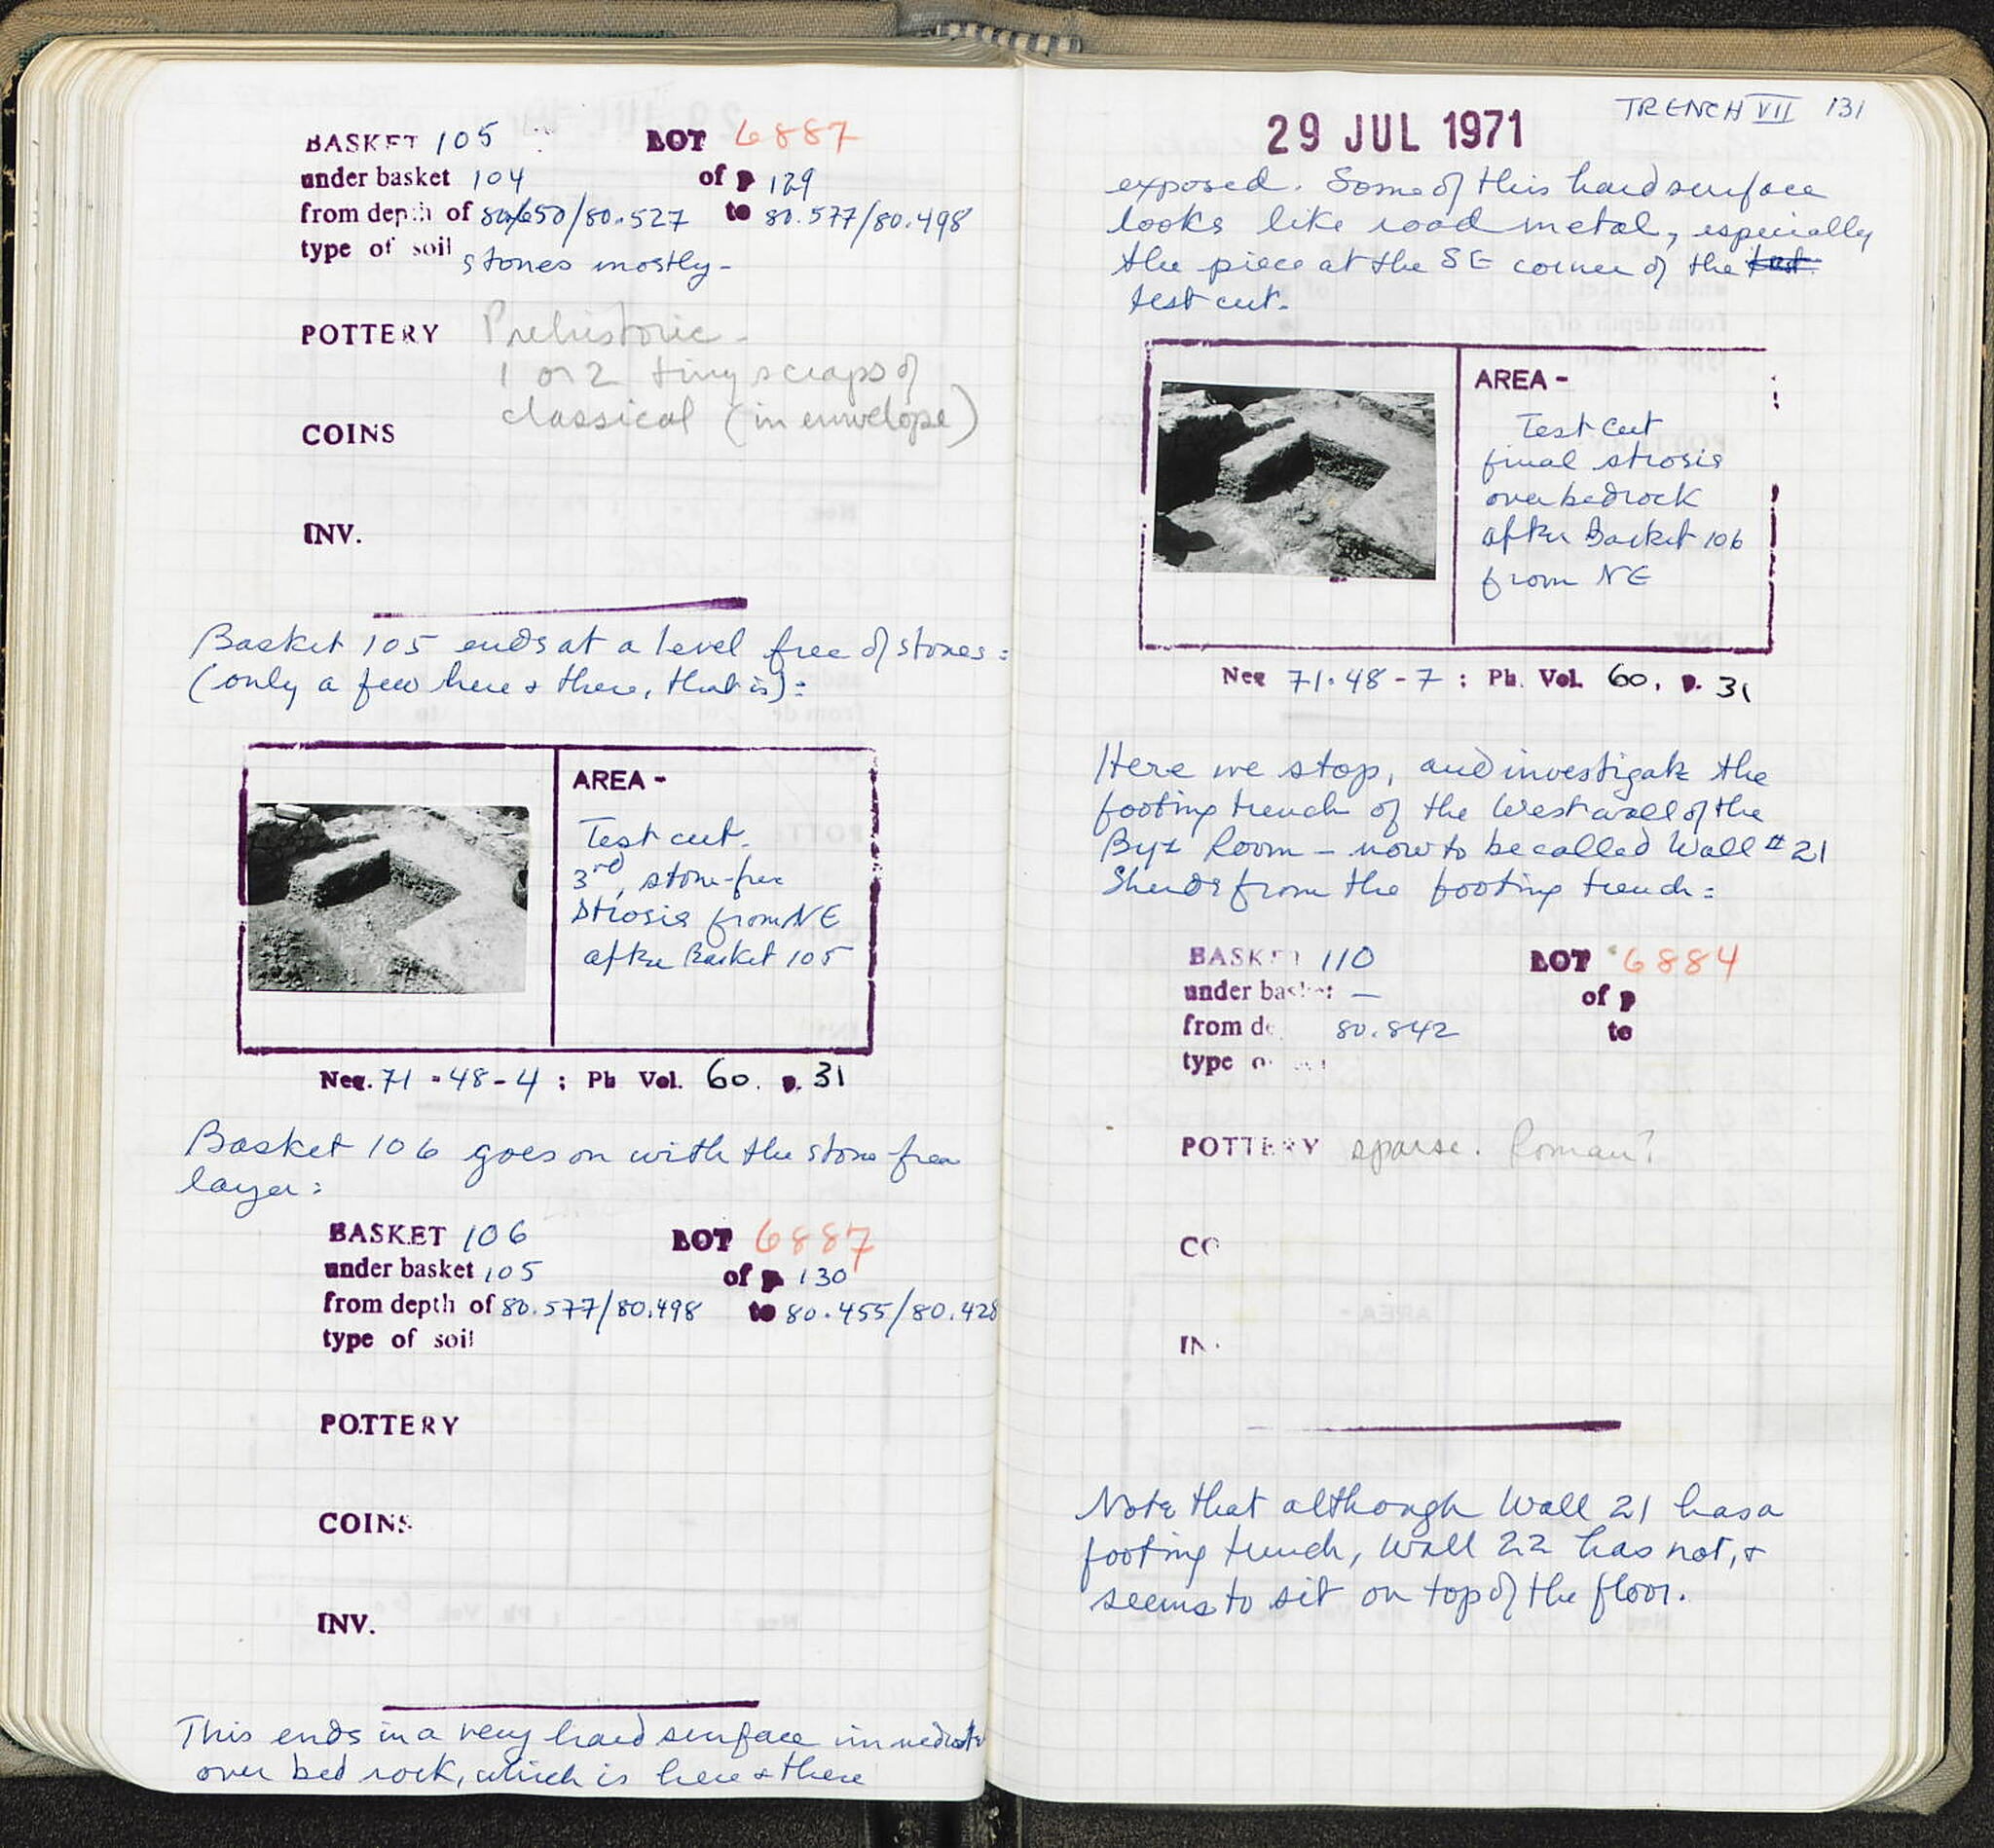 BASKET 105 LOT 6887
under basket 104 of p 129
from depth of 80.650/80.527 to 80.577/80.498
type of soil stones mostly -
POTTERY Prehistoric -
1 or 2 tiny scraps of
classical (in envelope)
COINS
INV.
Basket 105 ends at a level free of stones:
(only a few here & there, that is):
AREA -
Test cut.
3rd, stone-free
strosis from NE
after Basket 105
Neg. 71-48-4 ; Ph Vol. 60. p. 31
Basket 106 goes on with the stone free
layer:
BASKET 106 LOT 6887
under basket 105 of p 130
from depth of 80.577/80.498 to 80.455/80.428
type of soil
POTTERY
COINS
INV.
This ends in a very hard surface immediately
over bed rock, which is here & there
TRENCH VII 131
29 JUL 1971
exposed. Some of this hard surface
looks like road metal, especially
the piece at the SE corner of the test
test cut.
AREA -
Test Cut
final strosis
over bedrock
after Basket 106
from NE
Neg 71-48-7 ; Ph. Vol. 60, p. 31
Here we stop, and investigate the
footing trench of the West wall of the
Byz Room - now to be called Wall #21
Sherds from the footing trench:
BASKET 110 LOT 6884
under basket — of p
from de 80.842 to
type o
POTTERY sparse. Roman?
CO
IN.
Note that although Wall 21 has a
footing trench, Wall 22 has not, &
seems to sit on top of the floor.